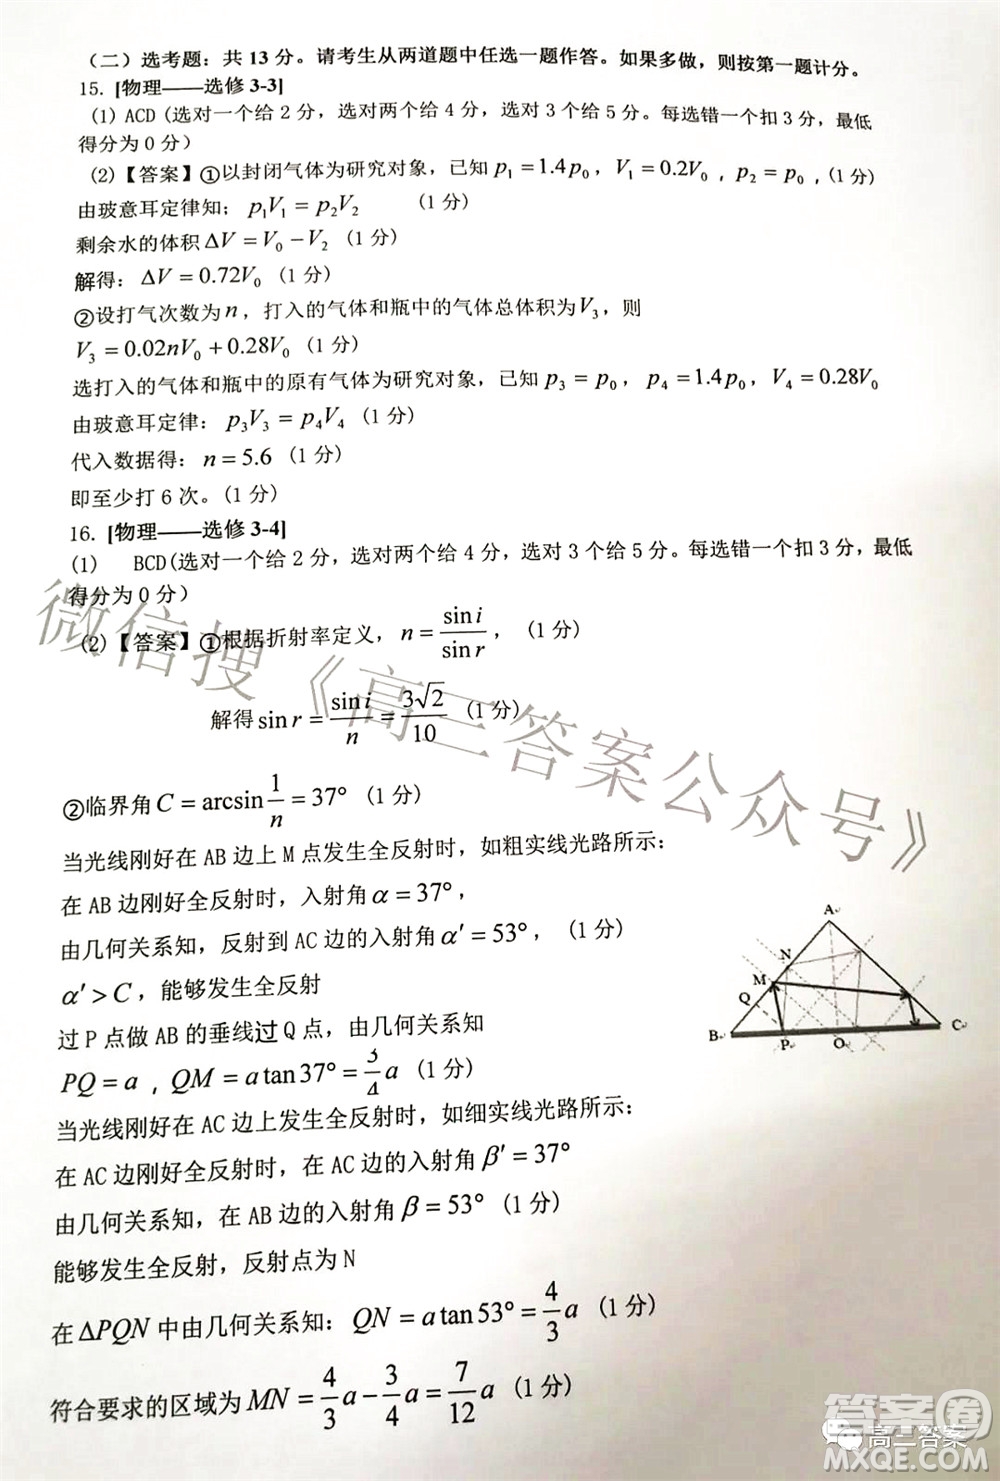 （二）选考题：共 13 分。请考生从两道题中任选一题作答。如果多做，则按第一题计分。
15. [物理——选修 3-3]
(1) ACD (选对一个给 2 分，选对两个给 4 分，选对 3 个给 5 分。每选错一个扣 3 分，最低
得分为 0 分）
(2)【答案】①以封闭气体为研究对象，已知 p₁=1.4p₀，V₁=0.2V₀，p₂=p₀，(1 分)
由玻意耳定律知；p₁V₁=p₂V₂ (1 分)
剩余水的体积 ΔV=V₀−V₂ (1 分)
解得：ΔV=0.72V₀ (1 分)
②设打气次数为 n，打入的气体和瓶中的气体总体积为 V₃，则
V₃=0.02nV₀+0.28V₀ (1 分)
选打入的气体和瓶中的原有气体为研究对象，已知 p₃=p₀，p₄=1.4p₀，V₄=0.28V₀
由玻意耳定律：p₃V₃=p₄V₄ (1 分)
代入数据得：n=5.6 (1 分)
即至少打 6 次。(1 分)
16. [物理——选修 3-4]
(1) BCD(选对一个给 2 分，选对两个给 4 分，选对 3 个给 5 分。每选错一个扣 3 分，最低
得分为 0 分）
(2)【答案】①根据折射率定义，n=sin i/sin r，(1 分)
解得 sin r=sin i/n=3√2/10 (1 分)
②临界角 C=arcsin 1/n=37° (1 分)
当光线刚好在 AB 边上 M 点发生全反射时，如粗实线光路所示：
在 AB 边刚好全反射时，入射角 α=37°，
由几何关系知，反射到 AC 边的入射角 α′=53°，(1 分)
α′>C，能够发生全反射
过 P 点做 AB 的垂线过 Q 点，由几何关系知
PQ=a，QM=a tan37°=3/4 a (1 分)
当光线刚好在 AC 边上发生全反射时，如细实线光路所示：
在 AC 边刚好全反射时，在 AC 边的入射角 β′=37°
由几何关系知，在 AB 边的入射角 β=53° (1 分)
能够发生全反射，反射点为 N
在 ΔPQN 中由几何关系知：QN=a tan53°=4/3 a (1 分)
符合要求的区域为 MN=4/3 a−3/4 a=7/12 a (1 分)
A
N
M
Q
B
P
O
C
微信搜《高三答案公众号》
答案圈
高三答案
MXQE.COM